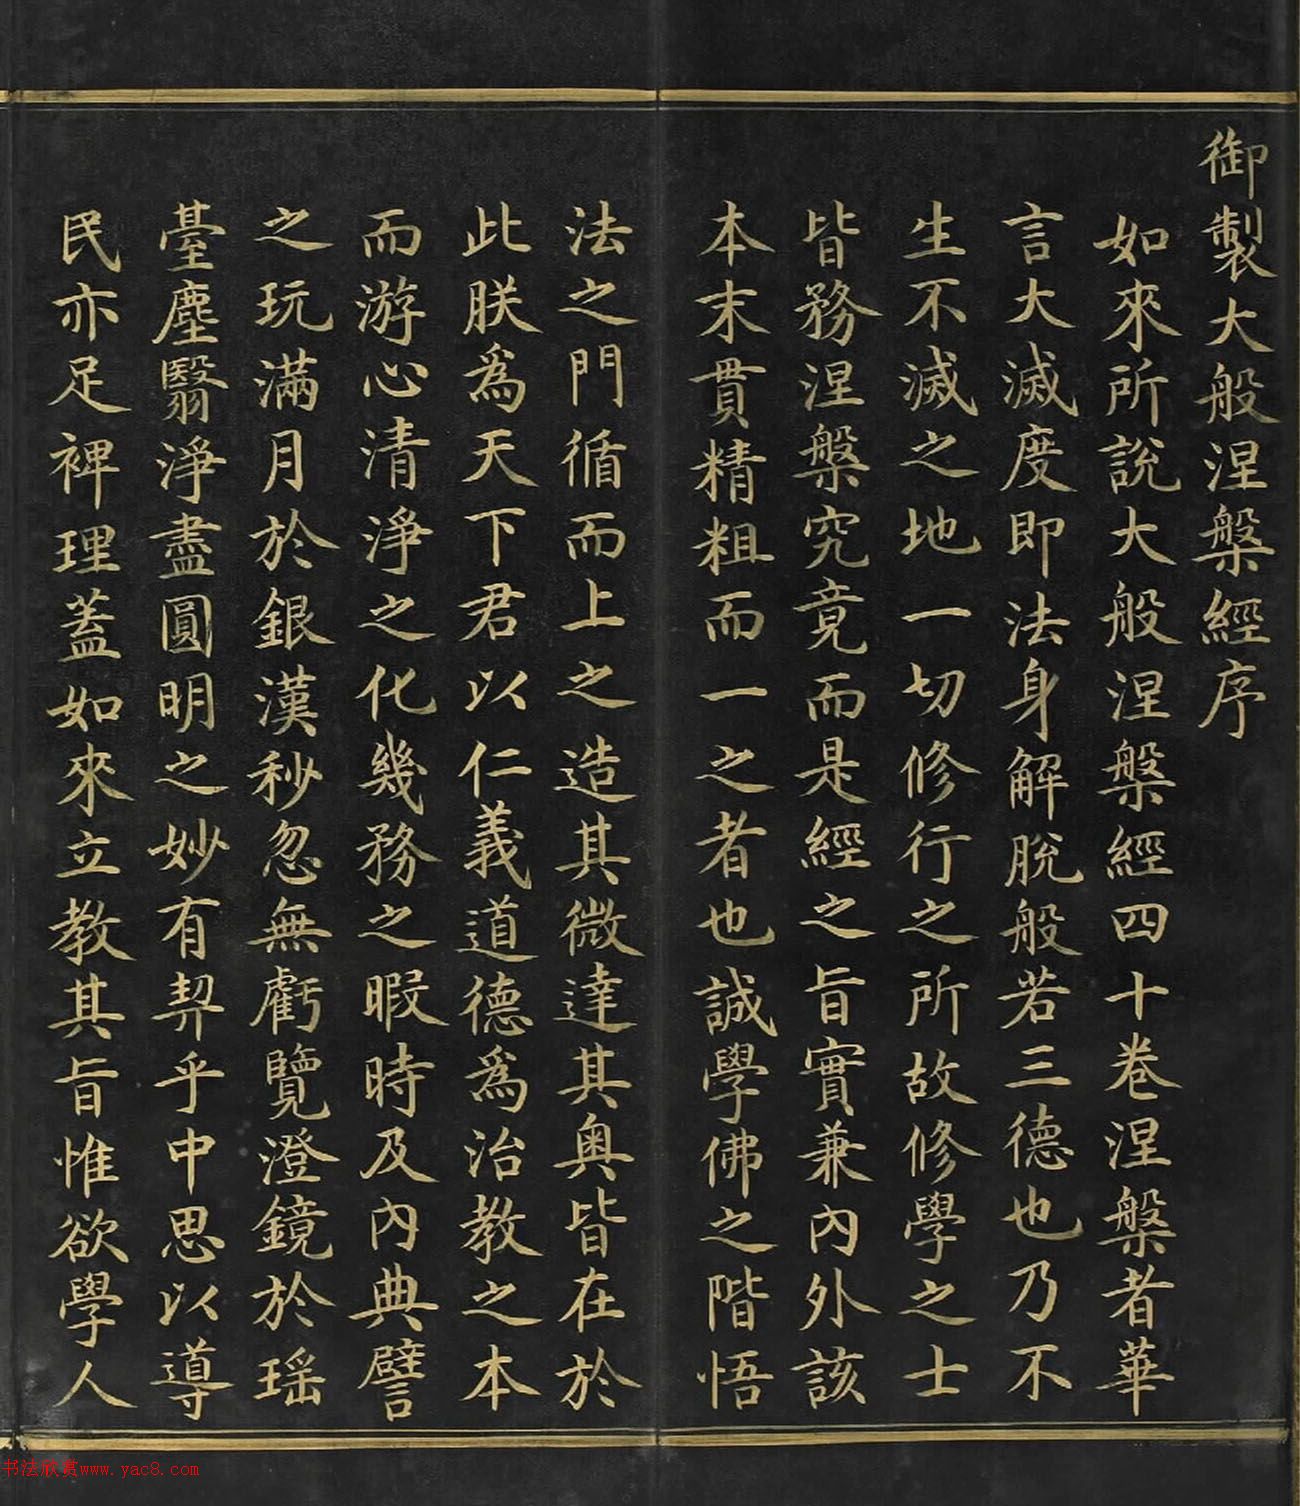 御製大般涅槃經序
如來所說大般涅槃經四十卷涅槃者華
言大滅度即法身解脫般若三德也乃不
生不滅之地一切修行之所故修學之士
皆務涅槃究竟而是經之旨實兼內外該
本末貫精粗而一之者也誠學佛之階悟
法之門循而上之造其微達其奧皆在於
此朕為天下君以仁義道德為治教之本
而游心清淨之化幾務之暇時及內典譬
之玩滿月於銀漢秒忽無虧覽澄鏡於瑶
臺塵翳淨盡圓明之妙有契乎中思以導
民亦足裨理蓋如來立教其旨惟欲學人
书法欣赏www.yac8.com